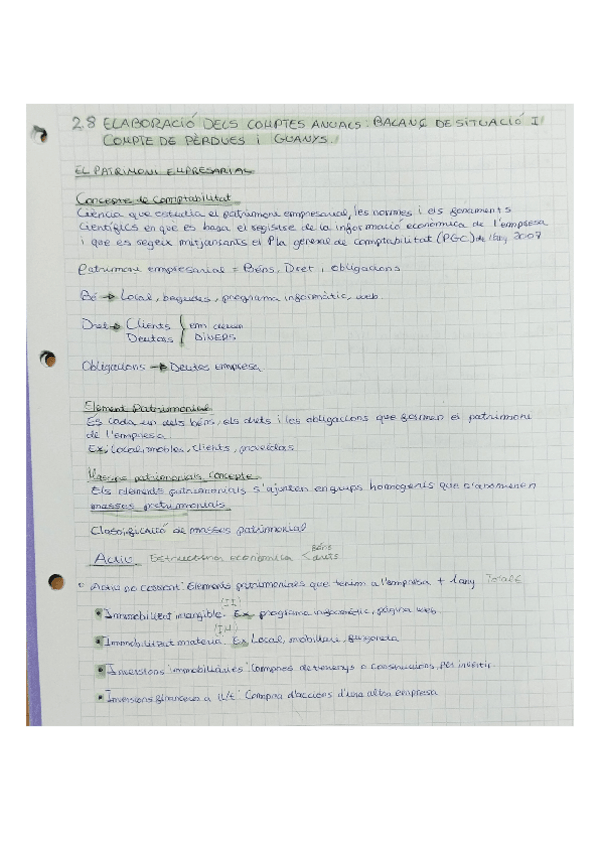 2.8 ELABORACIÓ DELS COMPTES ANUALS: BALANÇ DE SITUACIÓ I
COMPTE DE PÈRDUES I GUANYS.
EL PATRIMONI EMPRESARIAL
Concepte de comptabilitat
Ciència que estudia el patrimoni empresarial, les normes i els fonaments
Científics en que es basa el registre de la informació econòmica de l'empresa
i que es segeix mitjansants el Pla general de comptabilitat (PGC) de l'any 2007
Patrimoni empresarial = Béns, Dret, obligacions
Bé → Local, begudes, programa informàtic, web.
Dret → Clients } em deuen
Deutors } DINERS
Obligacions → Deutes empresa
Element Patrimonial
És cada un dels béns, els drets i les obligacions que formen el patrimoni
de l'empresa
Ex: Local, mobles, clients,
Masses patrimonials concepte
Els elements patrimonials s'ajunten en grups homogenis que s'anomenen
masses patrimonials
Classificació de masses patrimonial
Actiu Estructura econòmica < Béns
drets
Actiu no corrent: Elements patrimonials que tenim a l'empresa + 1 any
(II)
Immobilitzat intangible: Ex programa informàtic, pàgina web.
(IM)
Immobilitzat material: Ex Local, mobiliari, furgoneta
Inversions immobiliàries: Compres de terrenys o construccions, per invertir
Inversions financeres a ll/t: Compra d'accions d'una altra empresa